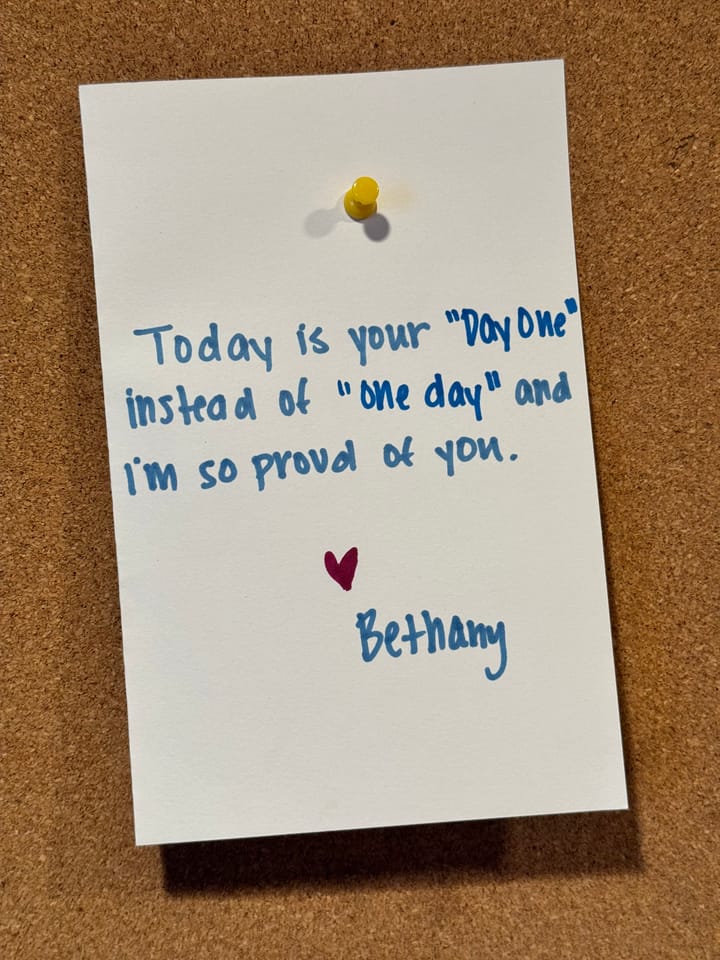 Today is your "Day One"
instead of "one day" and
I'm so proud of you.
Bethany